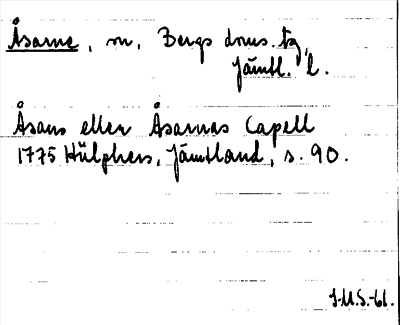 Åsarne, sn, Bergs doms. tg,
Jämtl. l.
Åsans eller Åsarnas Capell
1775 Hülphers, Jämtland, s. 90.
J.U.S.-61.